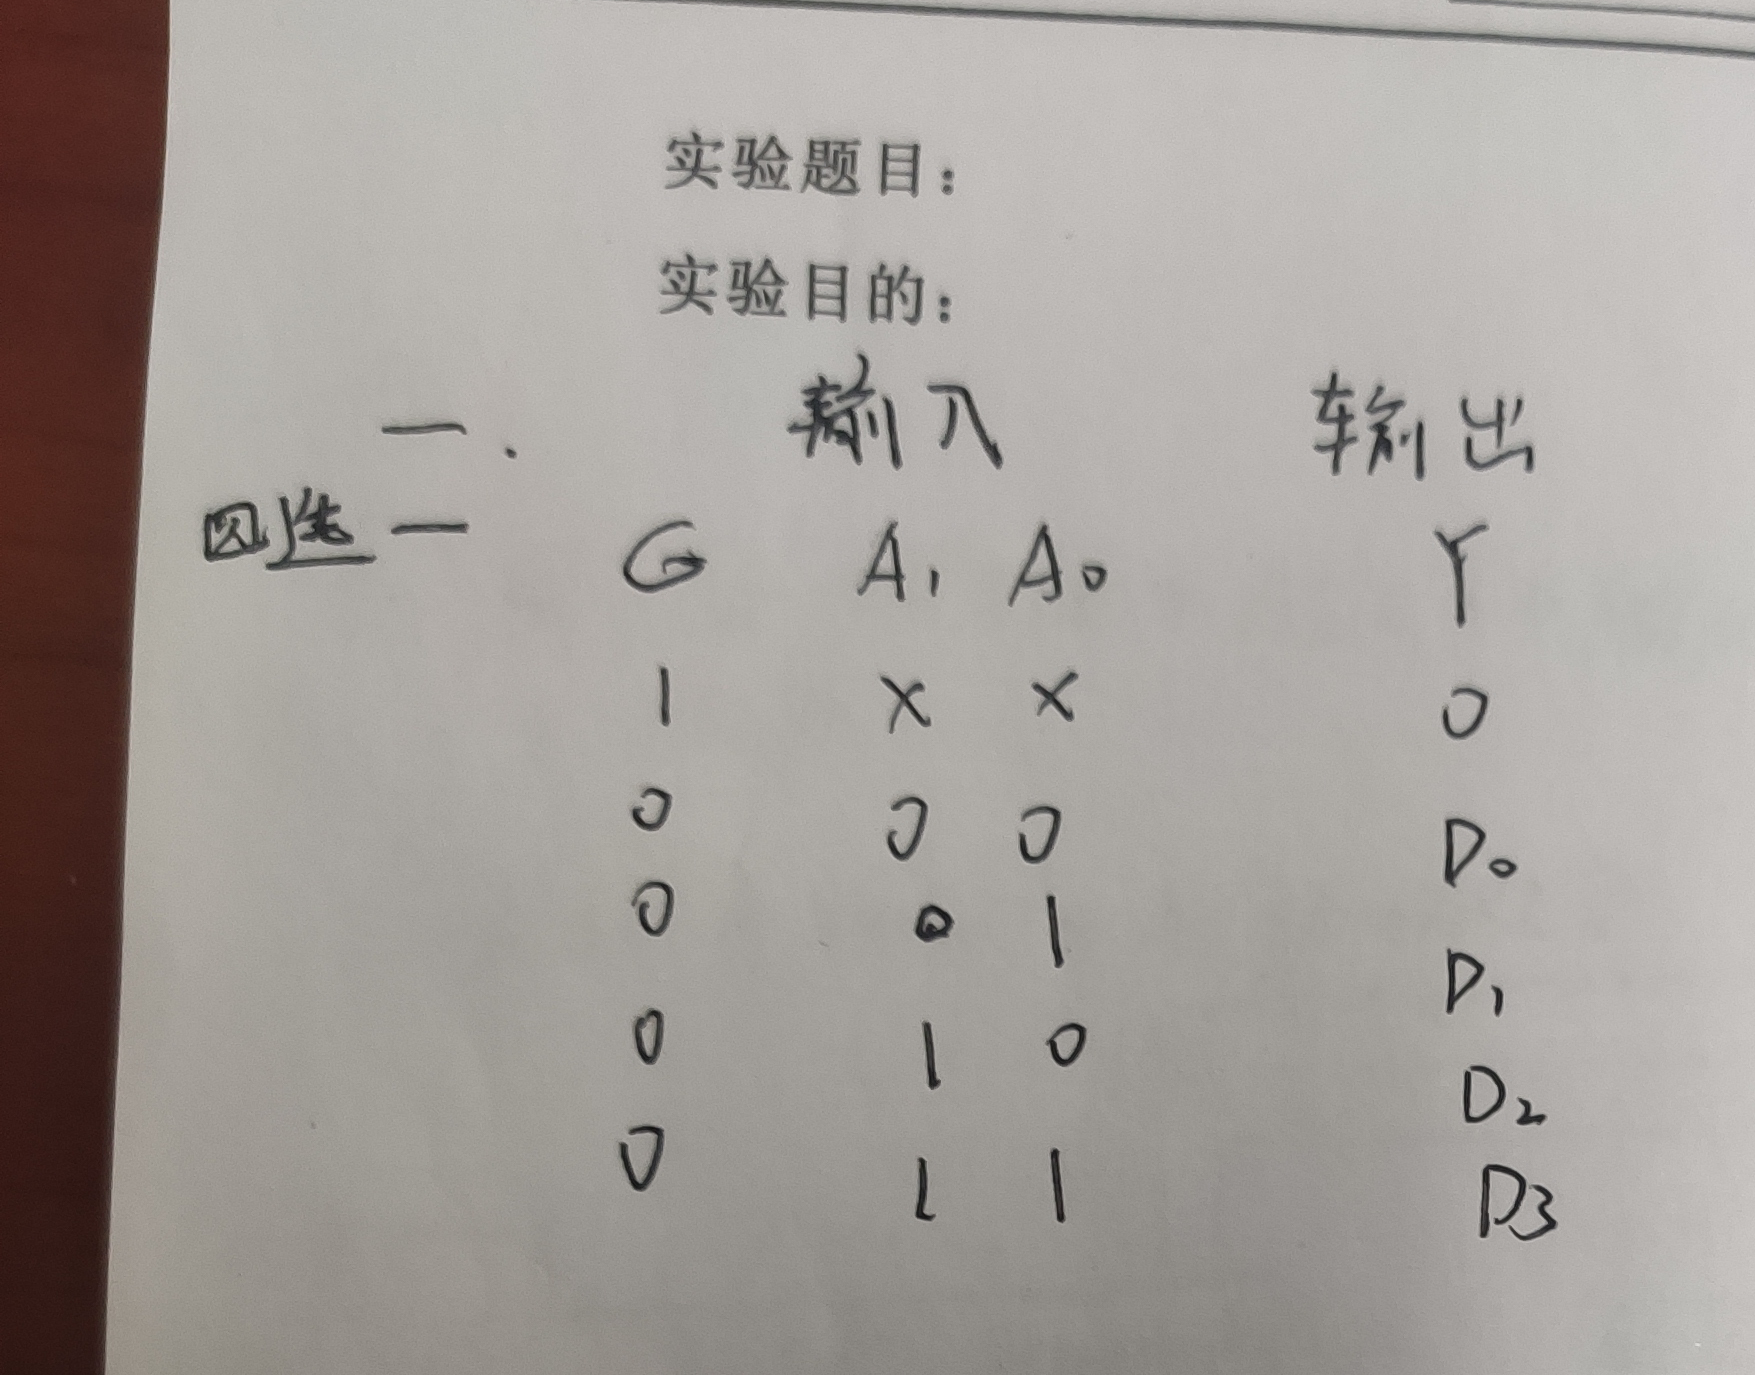 实验题目：
实验目的：
一. 输入 输出
四选一 G A₁ A₀ Y
1 × × 0
0 0 0 D₀
0 0 1 D₁
0 1 0 D₂
0 1 1 D3